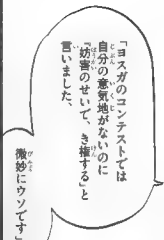 「ヨスガのコンテストでは
自分の意気地がないのに
『妨害のせいで、き権する』と
言いました、
微妙にウソです」